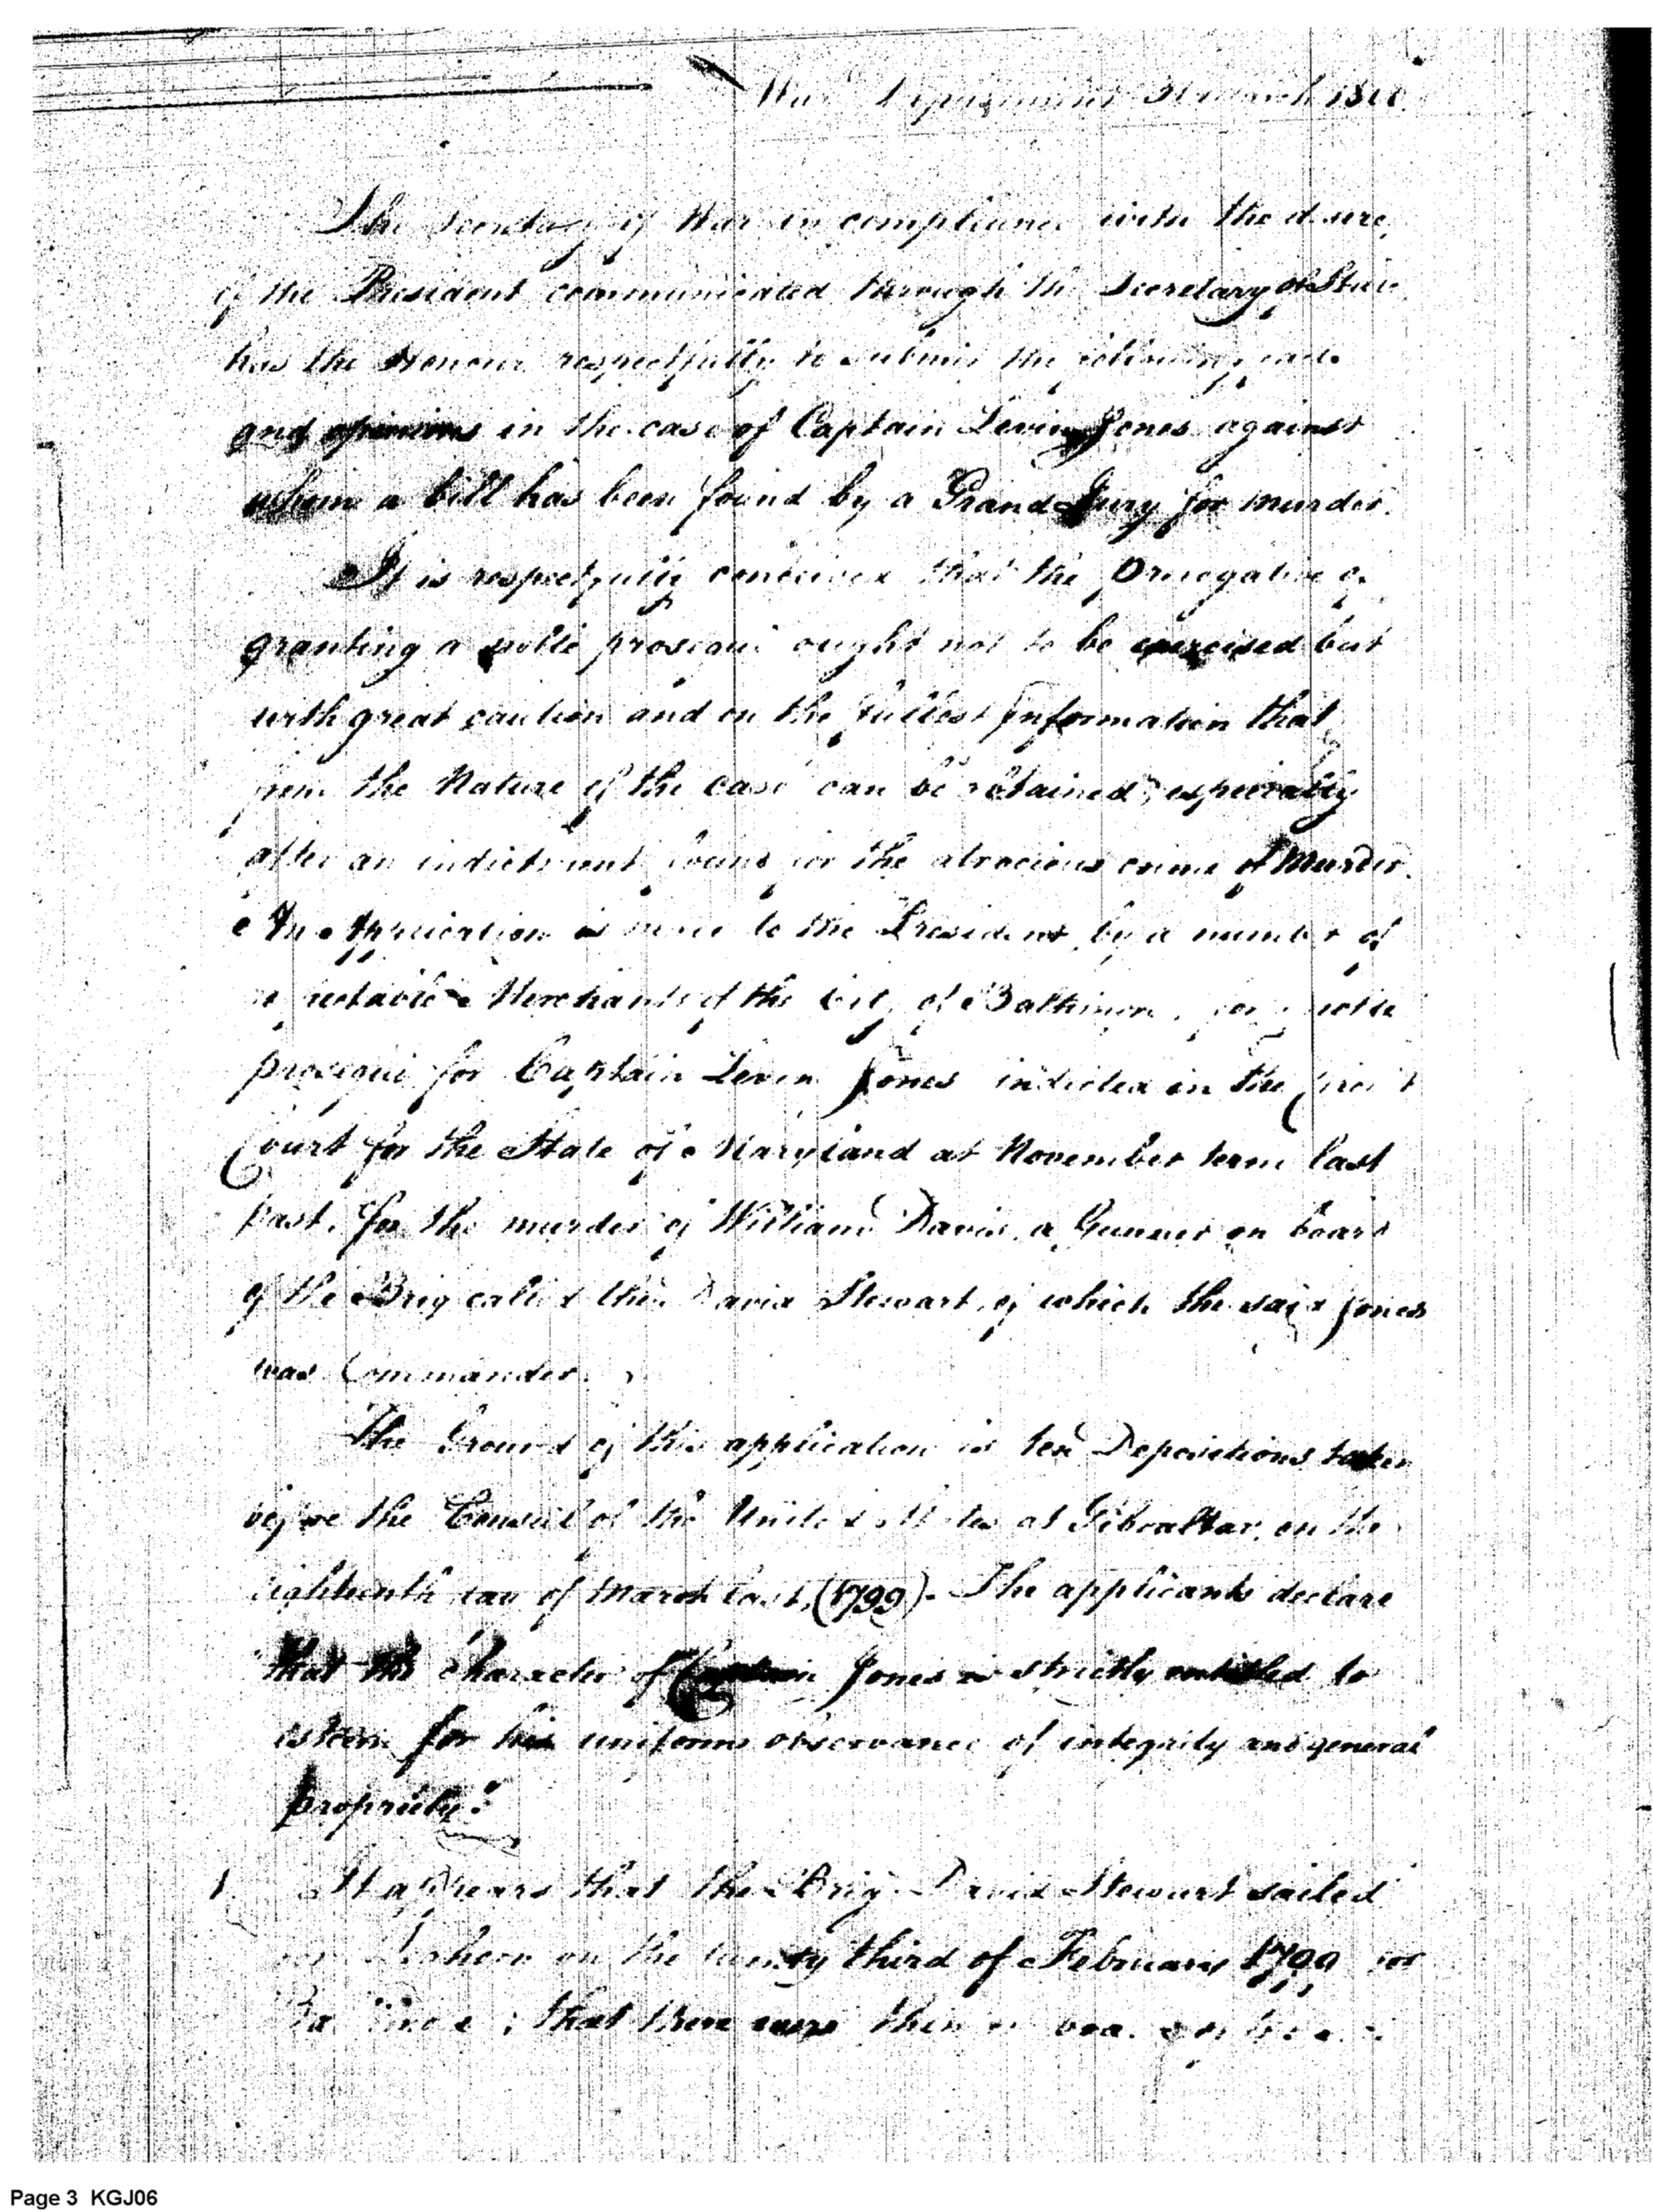 War Department March 1800
The Secretary of War in compliance with the desire
of the President communicated through the Secretary of State
has the Honour respectfully to submit the following facts
and opinions in the case of Captain Levin Jones against
whom a bill has been found by a Grand Jury for murder.
It is respectfully conceived that the Prerogative of
granting a nolle prosequi ought not to be exercised but
with great caution and on the fullest Information that
from the Nature of the case can be obtained, especially
after an indictment found for the atrocious crime of Murder.
An Application is made to the President, by a number of
respectable Merchants of the City of Baltimore, for a nolle
prosequi for Captain Levin Jones indicted in the Circuit
Court for the State of Maryland at November term last
past, for the murder of William Davis, a Gunner on board
of the Brig called the David Stewart, of which the said Jones
was Commander.
The Ground of this application is ten Depositions taken
before the Consul of the United States at Gibraltar, on the
eighteenth day of March last, (1799). The applicants declare
that the character of Captain Jones is strictly entitled to
esteem for his uniform observance of integrity and general
propriety.
1. It appears that the Brig David Stewart sailed
on the twenty third of February 1799 for
; that there were then on board
Page 3 KGJ06